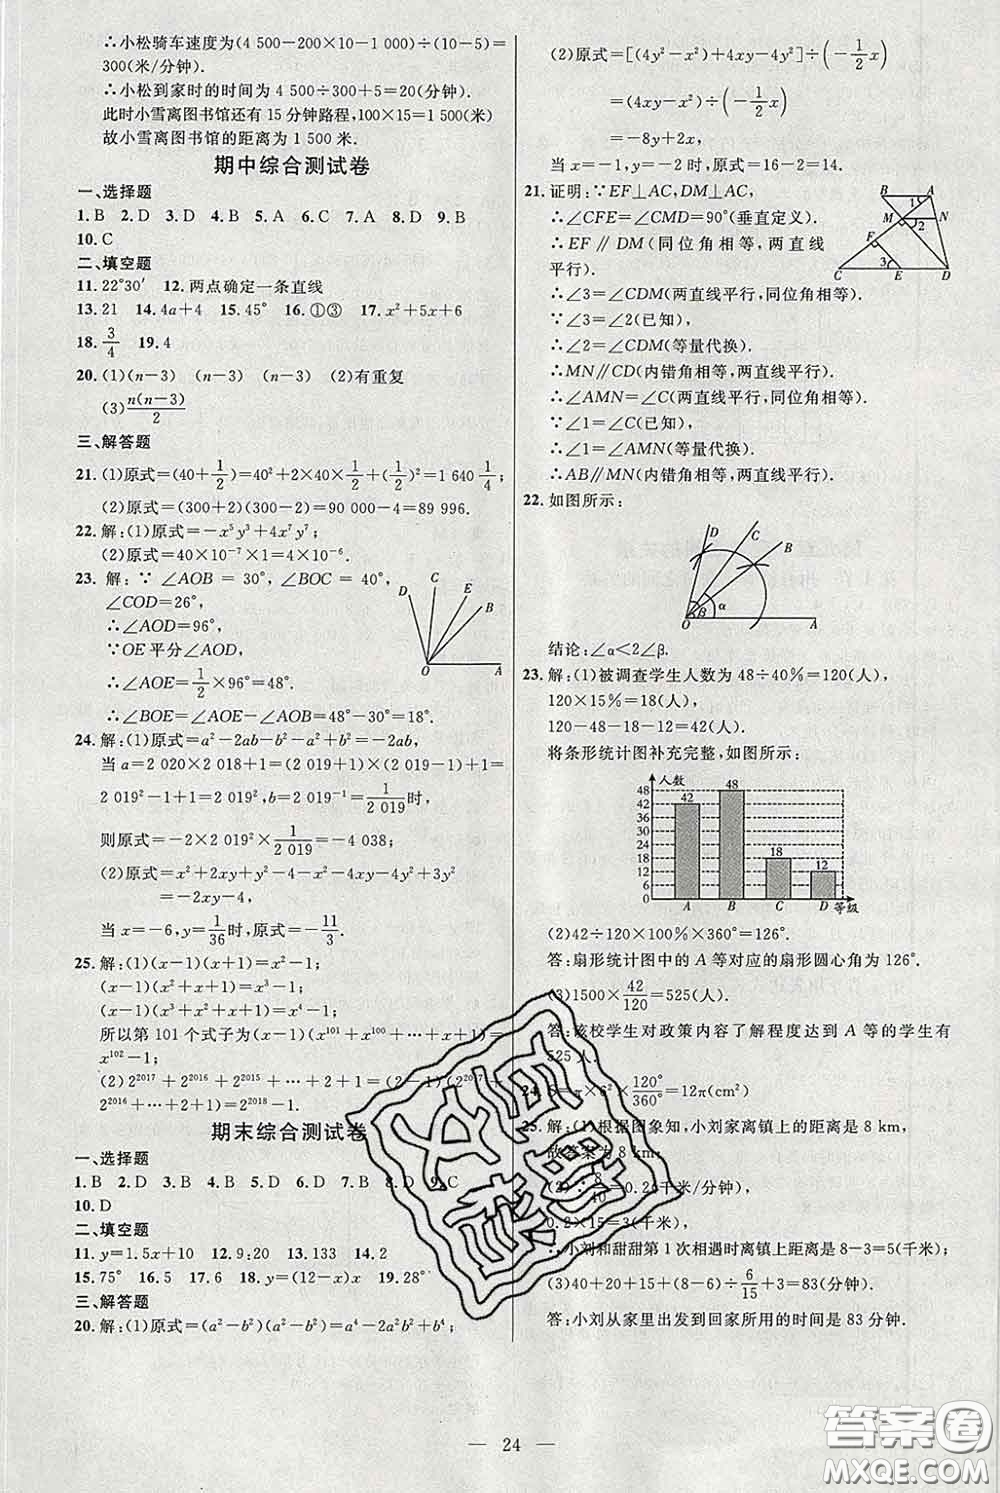 ∴小松骑车速度为(4 500－200×10－1 000)÷(10－5)＝
300(米/分钟).
∴小松到家时的时间为 4 500÷300＋5＝20(分钟).
此时小雪离图书馆还有 15 分钟路程,100×15＝1 500(米)
故小雪离图书馆的距离为 1 500 米.
期中综合测试卷
一、选择题
1.B 2.D 3.D 4.B 5.A 6.C 7.A 8.D 9.B
10.C
二、填空题
11.22°30′ 12.两点确定一条直线
13.21 14.4a＋4 15.45° 16.①③ 17.x²＋5x＋6
18.3/4 19.4
20.(1)(n－3) (n－3) (n－3) (2)有重复
(3)n(n－3)/2
三、解答题
21.(1)原式＝(40＋1/2)＝40²＋2×40×1/2＋(1/2)²＝1 640 1/4;
(2)原式＝(300＋2)(300－2)＝90 000－4＝89 996.
22.解:(1)原式＝－x⁵y³＋4x⁷y⁷;
(2)原式＝40×10⁻⁷×1＝4×10⁻⁶.
23.解:∵∠AOB＝30°,∠BOC＝40°,
∠COD＝26°,
∴∠AOD＝96°,
∵OE 平分∠AOD,
∴∠AOE＝1/2×96°＝48°.
∴∠BOE＝∠AOE－∠AOB＝48°－30°＝18°.
D C E B O A
24.解:(1)原式＝a²－2ab－b²－a²＋b²＝－2ab,
当 a＝2 020×2 018＋1＝(2 019＋1)×(2 019－1)＋1＝
2 019²－1＋1＝2 019²,b＝1/2 019时,
则原式＝－2×2 019²×1/2 019＝－4 038;
(2)原式＝x²＋2xy＋y²－4－x²－4xy－4y²＋3y²
＝－2xy－4,
当 x＝－6,y＝1/36时,原式＝－11/3.
25.解:(1)(x－1)(x＋1)＝x²－1;
(x－1)(x²＋x＋1)＝x³－1;
(x－1)(x³＋x²＋x＋1)＝x⁴－1;
所以第 101 个式子为(x－1)(x¹⁰¹＋x¹⁰⁰＋…＋x＋1)＝
x¹⁰²－1;
(2)2²⁰¹⁷＋2²⁰¹⁶＋2²⁰¹⁵＋…＋2＋1＝(2－1)(2²⁰¹⁷＋
2²⁰¹⁶＋…＋2＋1)＝2²⁰¹⁸－1.
期末综合测试卷
一、选择题
1.B 2.D 3.C 4.B 5.D 6.C 7.B 8.D 9.C
10.D
二、填空题
11.y＝1.5x＋10 12.9:20 13.133 14.2
15.75° 16.4 17.6 18.y＝(12－x)x 19.28°
三、解答题
20.解:(1)原式＝(a²－b²)(a²－b²)＝a⁴－2a²b²＋b⁴;
(2)原式＝[(4y²－x²)－(4y²－4xy)]÷(－1/2x)
＝(4xy－x²)÷(－1/2x)
＝－8y＋2x.
当 x＝－1,y＝－2 时,原式＝16－2＝14.
21.证明:∵EF⊥AC,DM⊥AC,
∴∠CFE＝∠CMD＝90°(垂直定义).
∴EF∥DM(同位角相等,两直线
平行).
∴∠3＝∠CDM(两直线平行,同位角相等).
∵∠3＝∠2(已知),
∴∠2＝∠CDM(等量代换).
∴MN∥CD(内错角相等,两直线平行).
∴∠AMN＝∠C(两直线平行,同位角相等).
∵∠1＝∠C(已知),
∴∠1＝∠AMN(等量代换).
∴AB∥MN(内错角相等,两直线平行).
B A 1 M N 2 F 3 C E D
22.如图所示:
D C B β α O A
结论:∠α＜2∠β.
23.解:(1)被调查学生人数为 48÷40%＝120(人),
120×15%＝18(人),
120－48－18－12＝42(人).
将条形统计图补充完整,如图所示:
人数
48 44 40 36 32 28 24 20 16 12 8 4 0
42 48 18 12
A B C D 等级
(2)42÷120×100%×360°＝126°.
答:扇形统计图中的 A 等对应的扇形圆心角为 126°.
(3)1500×42/120＝525(人).
答:该校学生对政策内容了解程度达到 A 等的学生有
525 人.
24.S＝π×6²×120°/360°＝12π(cm²)
25.解:(1)根据图象知,小刘家离镇上的距离是 8 km,
故答案为 8 km;
(2)∵8/40＝0.2(千米/分钟),
0.2×15＝3(千米),
∴小刘和甜甜第 1 次相遇时离镇上的距离是 8－3＝5(千米);
(3)40＋20＋15÷6/15＋3＝83(分钟).
答:小刘从家里出发到回家所用的时间是 83 分钟.
— 24 —
答案卷
MXQE.COM